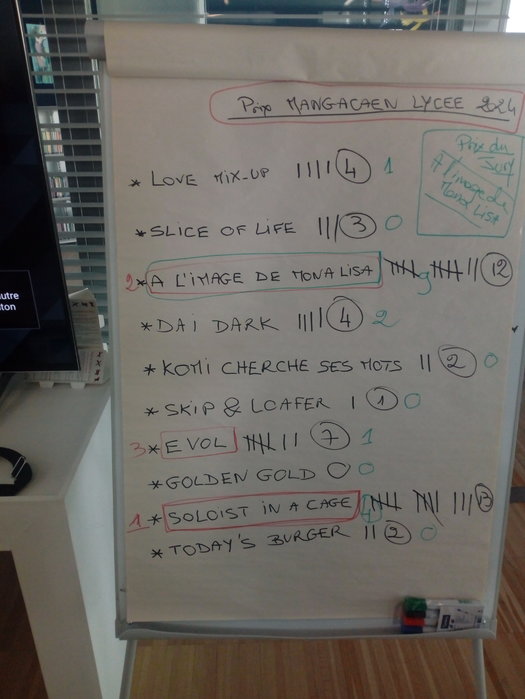 Prix MANGACAEN LYCEE 2024
Prix du
Jury
A l'image de
Mona Lisa
* LOVE MIX-UP |||| 4 1
* SLICE OF LIFE ||| 3 0
2 * A L'IMAGE DE MONA LISA 9 12
* DAI DARK |||| 4 2
* KOMI CHERCHE SES MOTS || 2 0
* SKIP & LOAFER | 1 0
3 * EVOL || 7 1
* GOLDEN GOLD 0 0
1 * SOLOIST IN A CAGE 4 ||| 13
* TODAY'S BURGER || 2 0
autre
ton